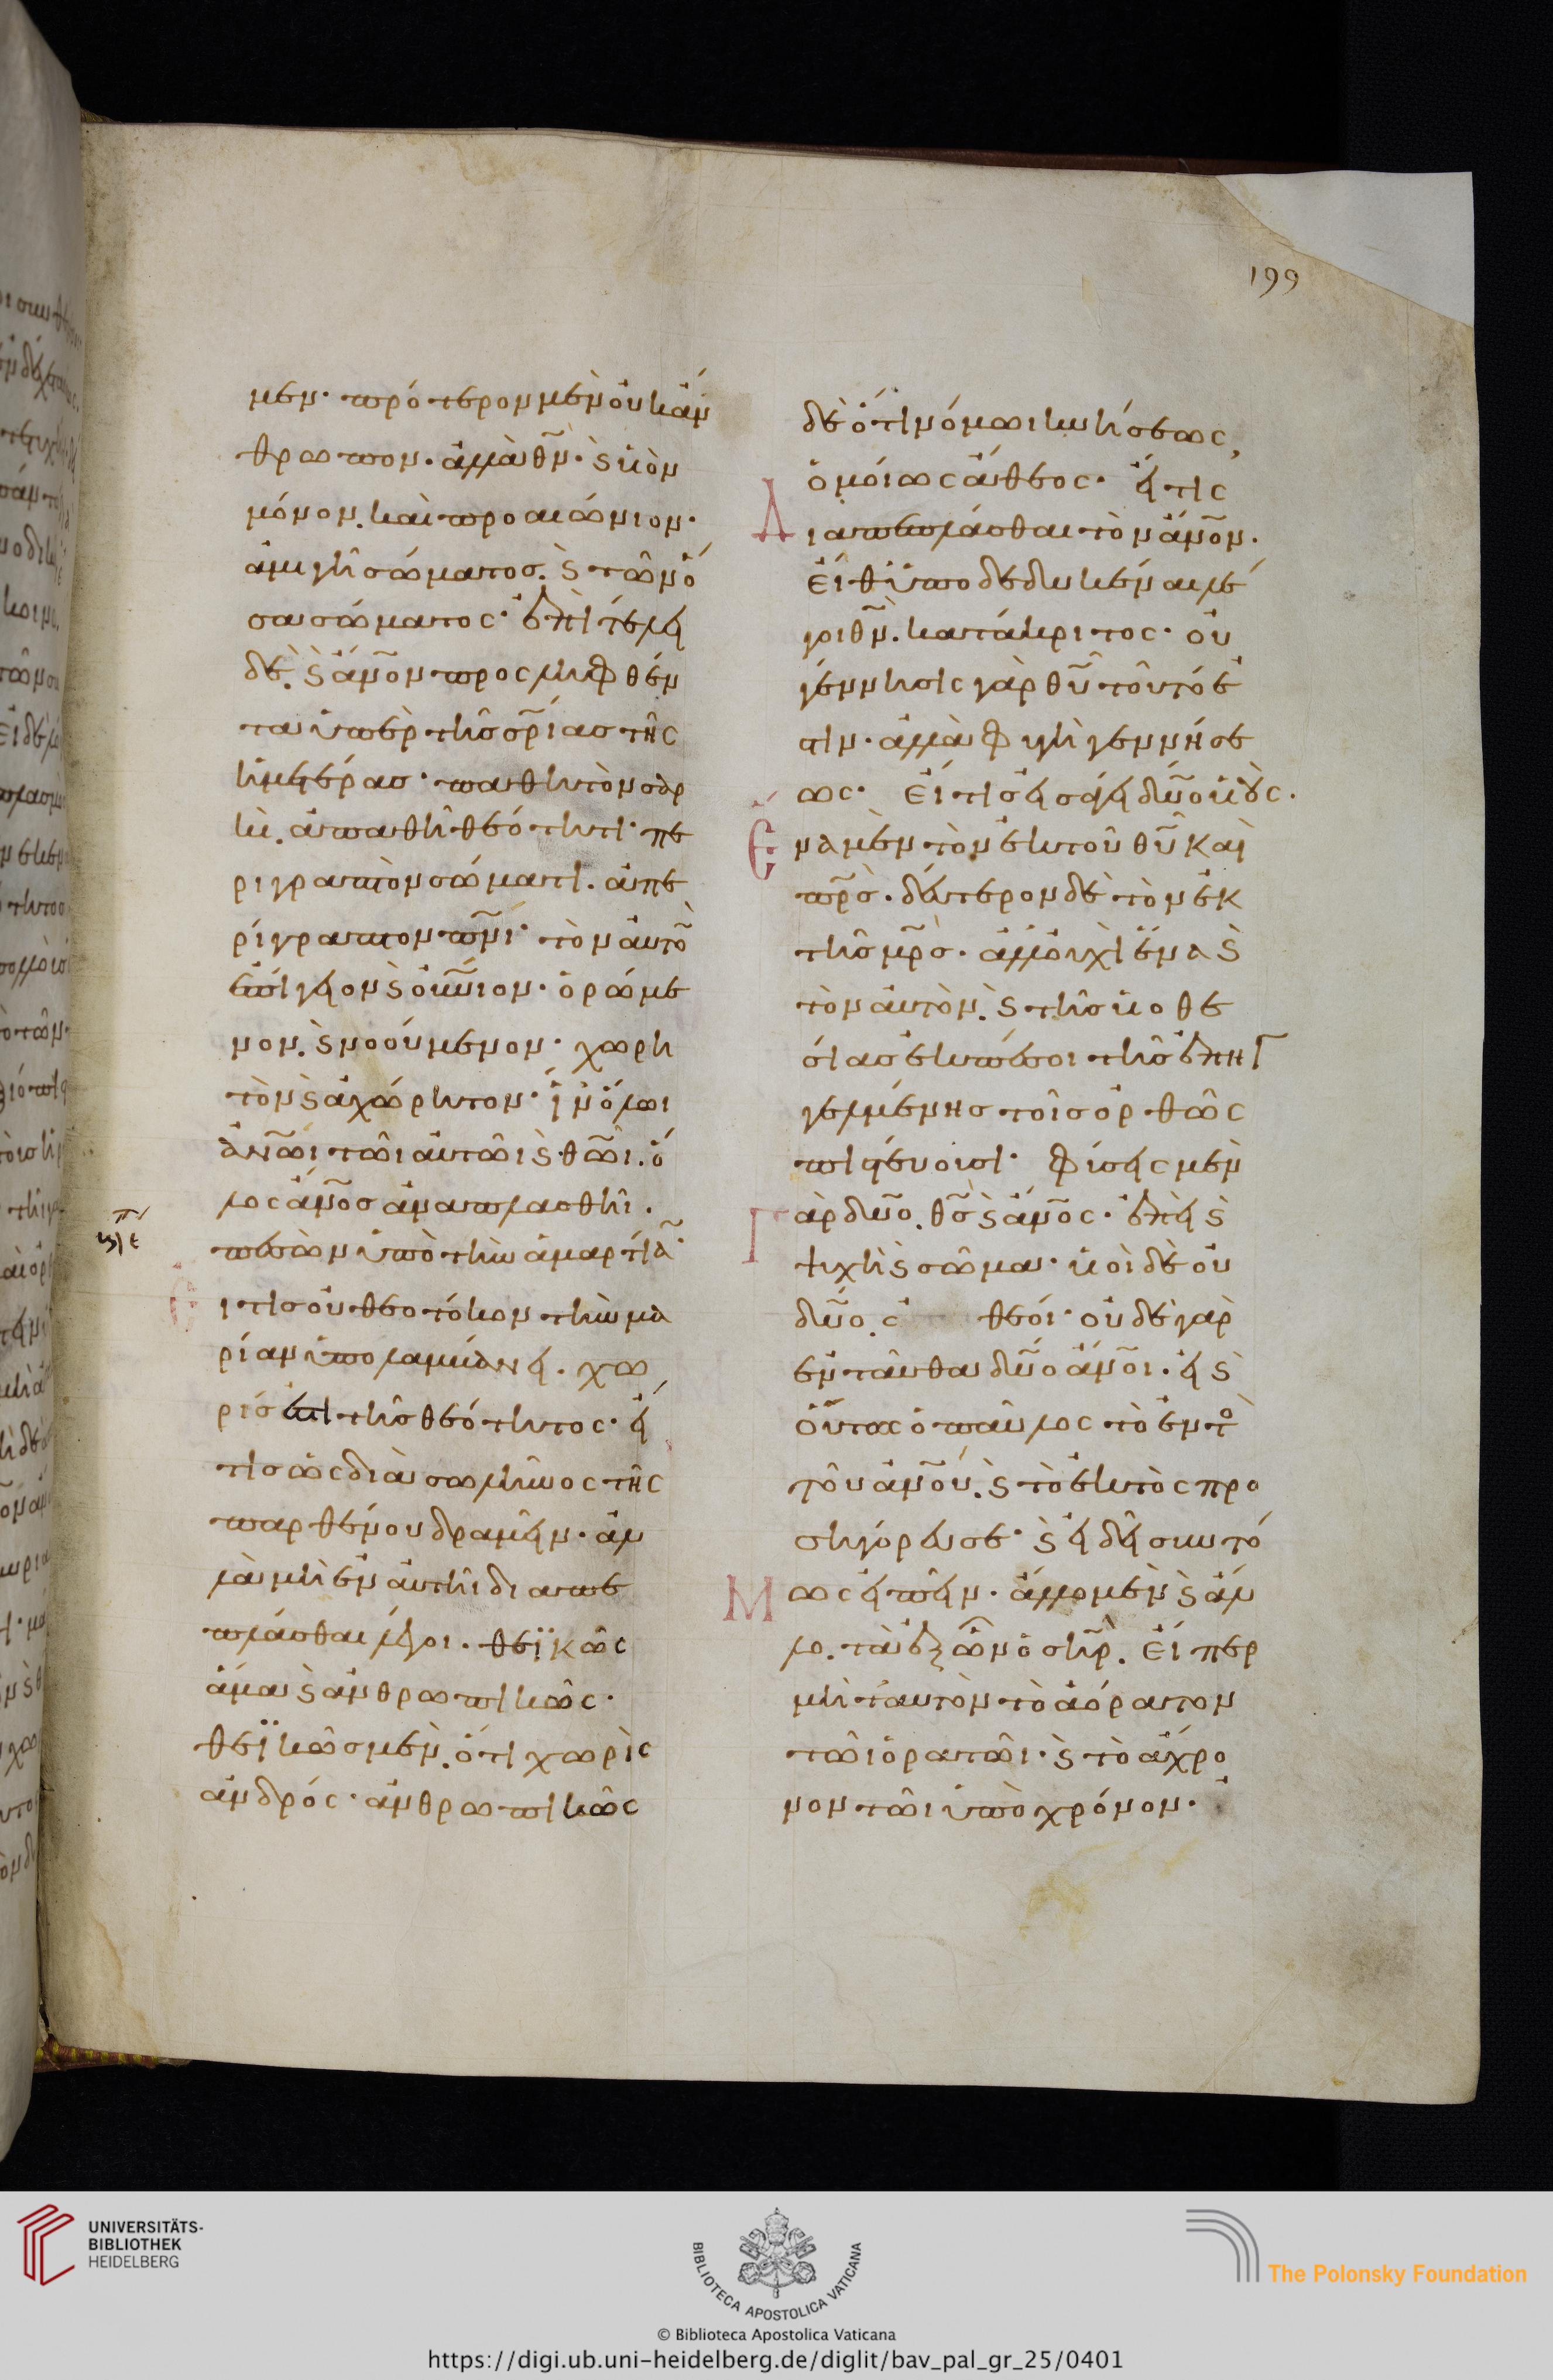 199
μεν· πρότερον μὲν οὐκ ἄν
θρωπον. ἀλλὰ θ̅ν̅· ϗ υἱὸν
μόνον. καὶ προαιώνιον·
ἀμιγῆ σώματος. ϗ τῶν ὅ
σα σώματος· ἐπὶ τέλει
δὲ. ϗ ἄν̅ο̅ν προσληφθέν
τα ὑπὲρ τῆς σ̅ρ̅ίας τῆς
ἡμετέρας· παθητὸν σαρ
κὶ. ἀπαθῆ θεότητι· πε
ριγραπτὸν σώματι. ἀπε
ρίγραπτον π̅ν̅ι· τὸν αὐτὸ̅
ἐπίγειον ϗ οὐ̅ν̅ιον· ὁρώμε
νον. ϗ νοούμενον· χωρη
τὸν ϗ ἀχώρητον· ἵν' ὅλωι
ἀν̅ω̅ι τῶι αὐτῶι ϗ θ̅ῶ̅ι. ὅ
λος ἄν̅ο̅ς ἀναπλασθῆι.
πεσὼν ὑπὸ τὴν ἁμαρτία̅·
Εἴ τις οὐ θεοτόκον τὴν μα
ρίαν ὑπολαμβάνει. χω
ρίς ἐστι τῆς θεότητος· εἴ
τις ὡς διὰ σωλῆνος τῆς
παρθένου δραμεῖν· ἀλ
λὰ μὴ ἐν αὐτῆι διαπε
πλάσθαι λέγοι. θεϊκῶς
ἅμα ϗ ἀνθρωπικῶς·
θεϊκῶς μὲν. ὅτι χωρὶς
ἀνδρός· ἀνθρωπικῶς
δὲ ὅτι νόμωι κυήσεως,
ὁμοίως ἄθεος· εἴ τις
Διαπεπλάσθαι τὸν ἄν̅ο̅ν.
εἶθ' ὑποδεδυκέναι λέ
γοι θ̅ν̅. κατάκριτος· οὐ
γέννησις γὰρ θ̅υ̅ τοῦτό ἐ
στιν· ἀλλὰ φυγὴ γεννήσε
ως· εἴ τις εἰσάγει δύο υἱούς.
Ἕνα μὲν τὸν ἐκ τοῦ θ̅υ̅ καὶ
π̅ρ̅ς. δεύτερον δὲ τὸν ἐκ
τῆς μ̅ρ̅ς. ἀλλ' οὐχὶ ἕνα ϗ
τὸν αὐτὸν. ϗ τῆς υἱοθε
σίας ἐκπέσοι τῆς ἐπηγ
γελμένης τοῖς ὀρθῶς
πιστεύουσι· φύσεις μὲν
Γὰρ δύο. θ̅ς̅ ϗ ἄν̅ο̅ς· ἐπεὶ ϗ
ψυχὴ ϗ σῶμα· υἱοὶ δὲ οὐ
δύο. θεοί· οὐδὲ γὰρ
ἐνταῦθα δύο ἄν̅ο̅ι. εἰ ϗ
οὕτως ὁ παῦλος τὸ ἐντὸ
τοῦ ἀν̅ο̅υ. ϗ τὸ ἐκτὸς προ
σηγόρευσε· ϗ εἰ δεῖ συντό
Μως εἰπεῖν. ἄλλο μὲν ϗ ἄλ
λο. τὰ ἐξ ὧν ὁ σ̅η̅ρ. εἴπερ
μὴ ταὐτὸν τὸ ἀόρατον
τῶι ὁρατῶι· ϗ τὸ ἄχρο
νον τῶι ὑπὸ χρόνον·
UNIVERSITÄTS-
BIBLIOTHEK
HEIDELBERG
BIBLIOTECA APOSTOLICA VATICANA
The Polonsky Foundation
© Biblioteca Apostolica Vaticana
https://digi.ub.uni-heidelberg.de/diglit/bav_pal_gr_25/0401